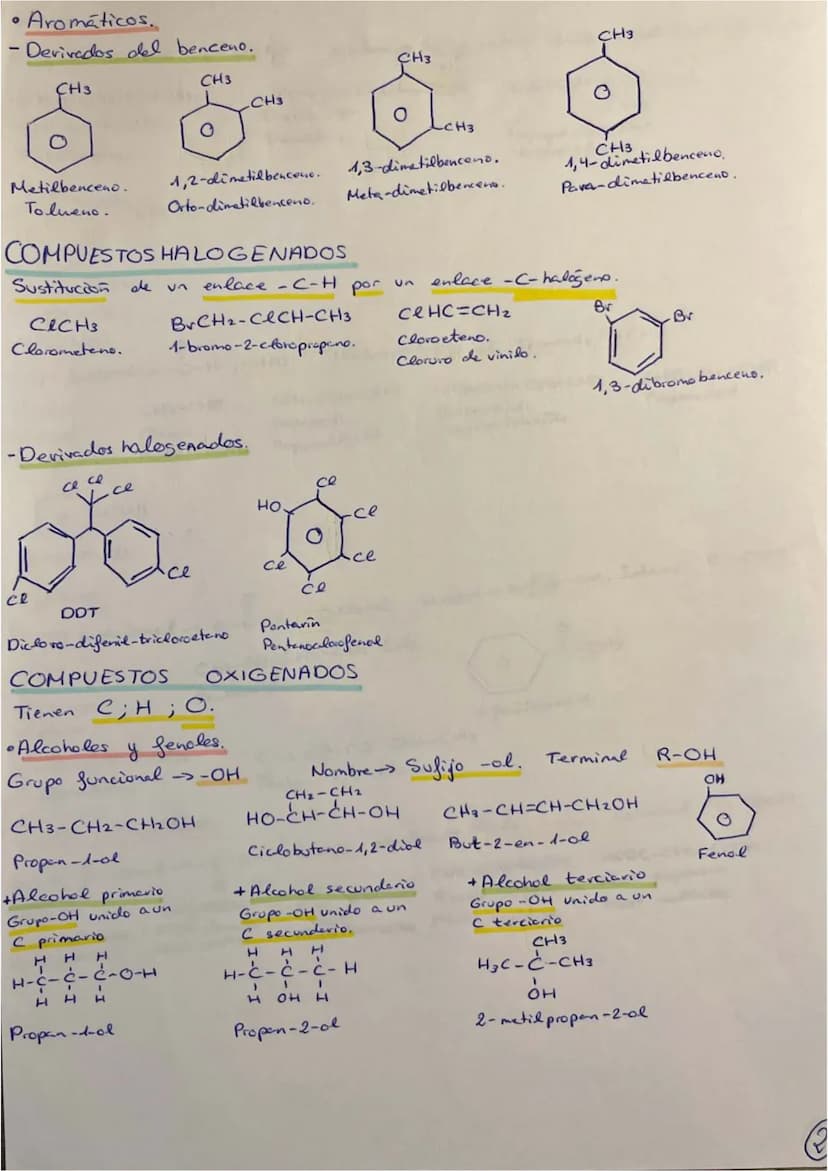 • Aromáticos.
- Derivados del benceno.
CH3
CH3
CH3
CH3
CH3
CH3
CH3
Metilbenceno.
Tolueno.
1,2-dimetilbenceno.
Orto-dimetilbenceno.
1,3-dimetilbenceno.
Meta-dimetilbenceno.
1,4-dimetilbenceno.
Para-dimetilbenceno.
COMPUESTOS HALOGENADOS
Sustitución de un enlace -C-H por un enlace -C-halógeno.
ClCH3
Clorometano.
BrCH2-ClCH-CH3
1-bromo-2-cloropropano.
ClHC=CH2
Cloroeteno.
Cloruro de vinilo.
Br
Br
1,3-dibromobenceno.
- Derivados halogenados.
Cl Cl Cl
Cl
Cl
DDT
Dicloro-difenil-tricloroetano
HO
Cl
Cl
Cl
Cl
Cl
Pentaclorofenol
COMPUESTOS OXIGENADOS
Tienen C; H ; O.
• Alcoholes y fenoles.
Grupo funcional → -OH Nombre → Sufijo -ol. Terminal R-OH
CH3-CH2-CH2OH
Propan-1-ol
CH2-CH2
HO-CH-CH-OH
Ciclobutano-1,2-diol
CH3-CH=CH-CH2OH
But-2-en-1-ol
OH
Fenol
+ Alcohol primario
Grupo-OH unido a un
C primario
H H H
H-C-C-C-O-H
H H H
Propan-1-ol
+ Alcohol secundario
Grupo-OH unido a un
C secundario.
H H H
H-C-C-C-H
H OH H
Propan-2-ol
+ Alcohol terciario
Grupo-OH unido a un
C terciario
CH3
H3C-C-CH3
OH
2-metilpropan-2-ol
2